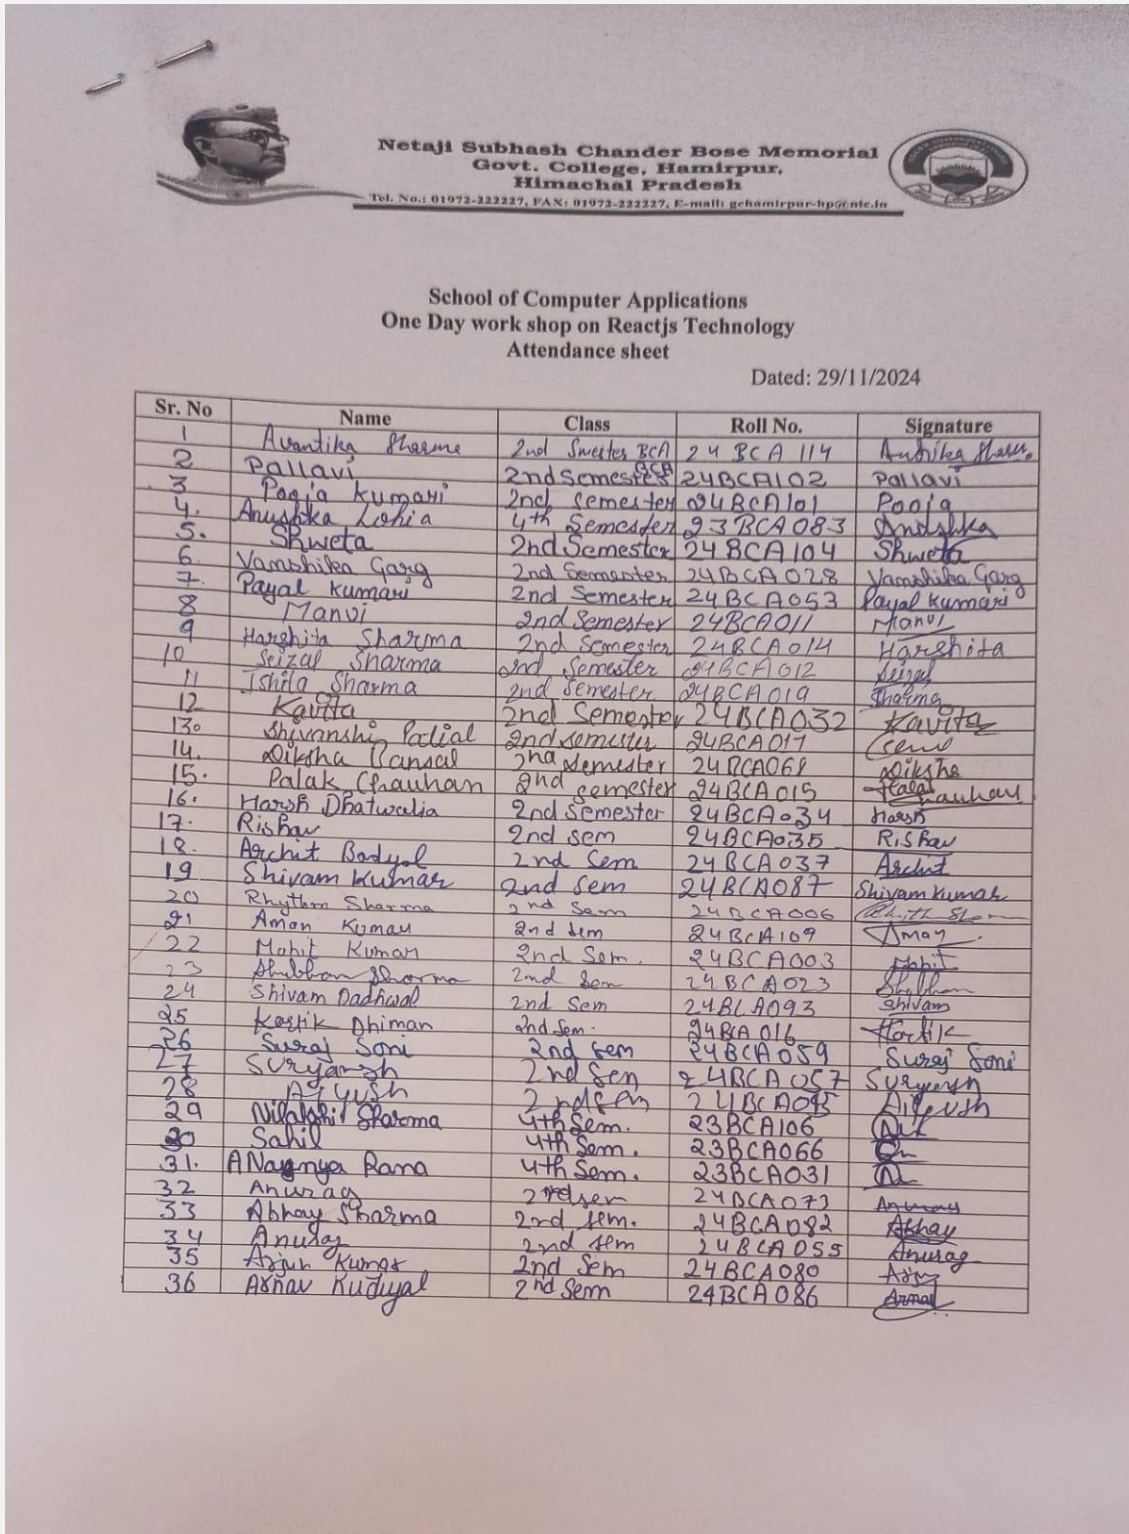 Netaji Subhash Chander Bose Memorial
Govt. College, Hamirpur,
Himachal Pradesh
Tel. No.: 01972-222227, FAX: 01972-222227, E-mail: gchamirpur-hp@nic.in
School of Computer Applications
One Day work shop on Reactjs Technology
Attendance sheet
Dated: 29/11/2024
Sr. No Name Class Roll No. Signature
1 Avantika Sharma 2nd BCA 24 BCA 114
2 Pallavi 2nd Semester BCA 24BCA102 Pallavi
3 Pooja Kumari 2nd Semester 24BCA101 Pooja
4. Anushka Lohia 4th Semester 23BCA083 Anushka
5. Shweta 2nd Semester 24BCA104 Shweta
6. Vanshika Garg 2nd Semester 24BCA028 Vanshika Garg
7. Payal Kumari 2nd Semester 24BCA053 Payal Kumari
8 Manvi 2nd Semester 24BCA011 Manvi
9 Harshita Sharma 2nd Semester 24BCA014 Harshita
10 Seizal Sharma 2nd Semester 24BCA012 Seizal
11 Ishita Sharma 2nd Semester 24BCA019 Sharma
12 Kavita 2nd Semester 24BCA032 Kavita
13. Shivanshi Palial 2nd semester 24BCA017
14. Diksha Bansal 2nd semester Diksha
15. Palak Chauhan 2nd semester 24BCA015 Palak Chauhan
16. Harsh Dhatwalia 2nd Semester 24BCA034 Harsh
17. Rishav 2nd sem 24BCA035 Rishav
18. Archit Badyal 2nd Sem 24BCA037 Archit
19 Shivam Kumar 2nd Sem 24BCA087 Shivam Kumar
20 Rhythm Sharma 2nd Sem 24BCA006
21 Aman Kumar 2nd sem 24BCA109 Aman
22 Mohit Kumar 2nd Sem. 24BCA003 Mohit
23 Shubham Sharma 2nd Sem 24BCA023
24 Shivam Dadhwal 2nd Sem 24BCA093 Shivam
25 Kartik Dhiman 2nd Sem. 24BCA016 Kartik
26 Suraj Soni 2nd sem 24BCA059 Suraj Soni
27 Suryansh 2nd Sem 24BCA057 Suryansh
28 Aiyush 2nd sem 24BCA095 Aiyush
29 Sharma 4th Sem. 23BCA106
30 Sahil 4th Sem. 23BCA066
31. Rana 4th Sem. 23BCA031
32 Anurag 24BCA073 Anurag
33 Abhay Sharma 2nd sem. 24BCA082 Abhay
34 Anurag 2nd sem 24BCA055 Anurag
35 Arjun Kumar 2nd Sem 24BCA080 Arjun
36 Arnav Kudyal 2nd Sem 24BCA086 Arnav